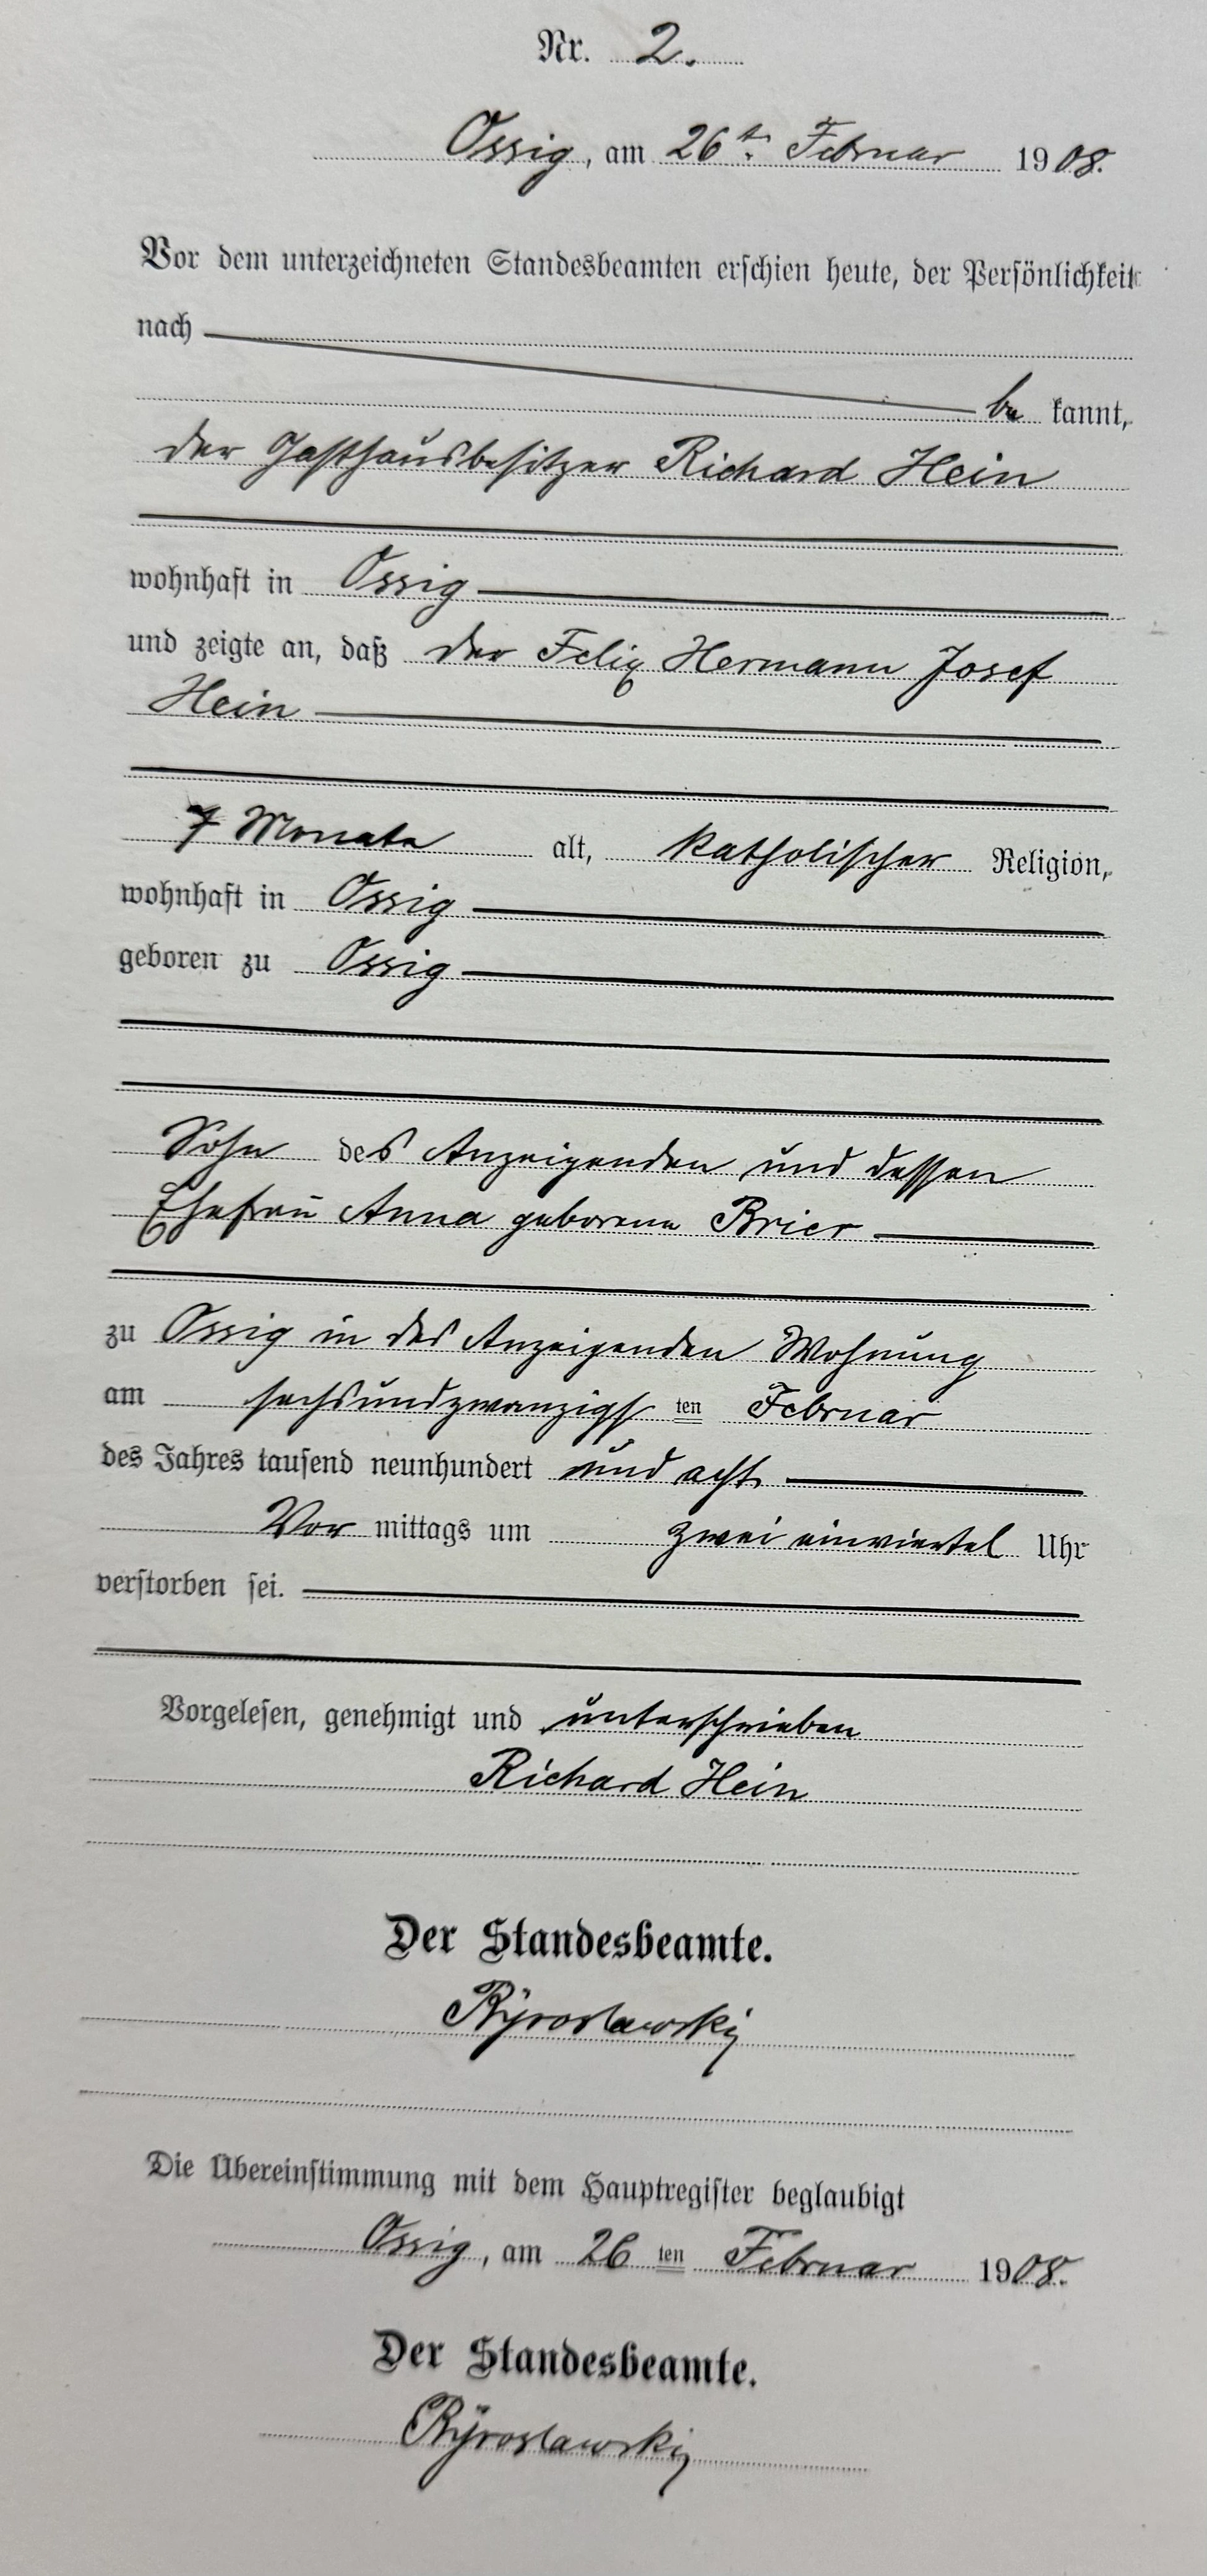 Nr. 2.
Ossig, am 26ten Februar 1908.
Vor dem unterzeichneten Standesbeamten erschien heute, der Persönlichkeit
nach
be kannt,
der Gasthausbesitzer Richard Hein
wohnhaft in Ossig
und zeigte an, daß der Felix Hermann Josef
Hein
7 Monate alt, katholischer Religion,
wohnhaft in Ossig
geboren zu Ossig
Sohn des Anzeigenden und dessen
Ehefrau Anna geborene Brier
zu Ossig in des Anzeigenden Wohnung
am sechsundzwanzigsten Februar
des Jahres tausend neunhundert und acht
Vor mittags um zwei einviertel Uhr
verstorben sei.
Vorgelesen, genehmigt und unterschrieben
Richard Hein
Der Standesbeamte.
Die Übereinstimmung mit dem Hauptregister beglaubigt
Ossig, am 26 ten Februar 1908.
Der Standesbeamte.